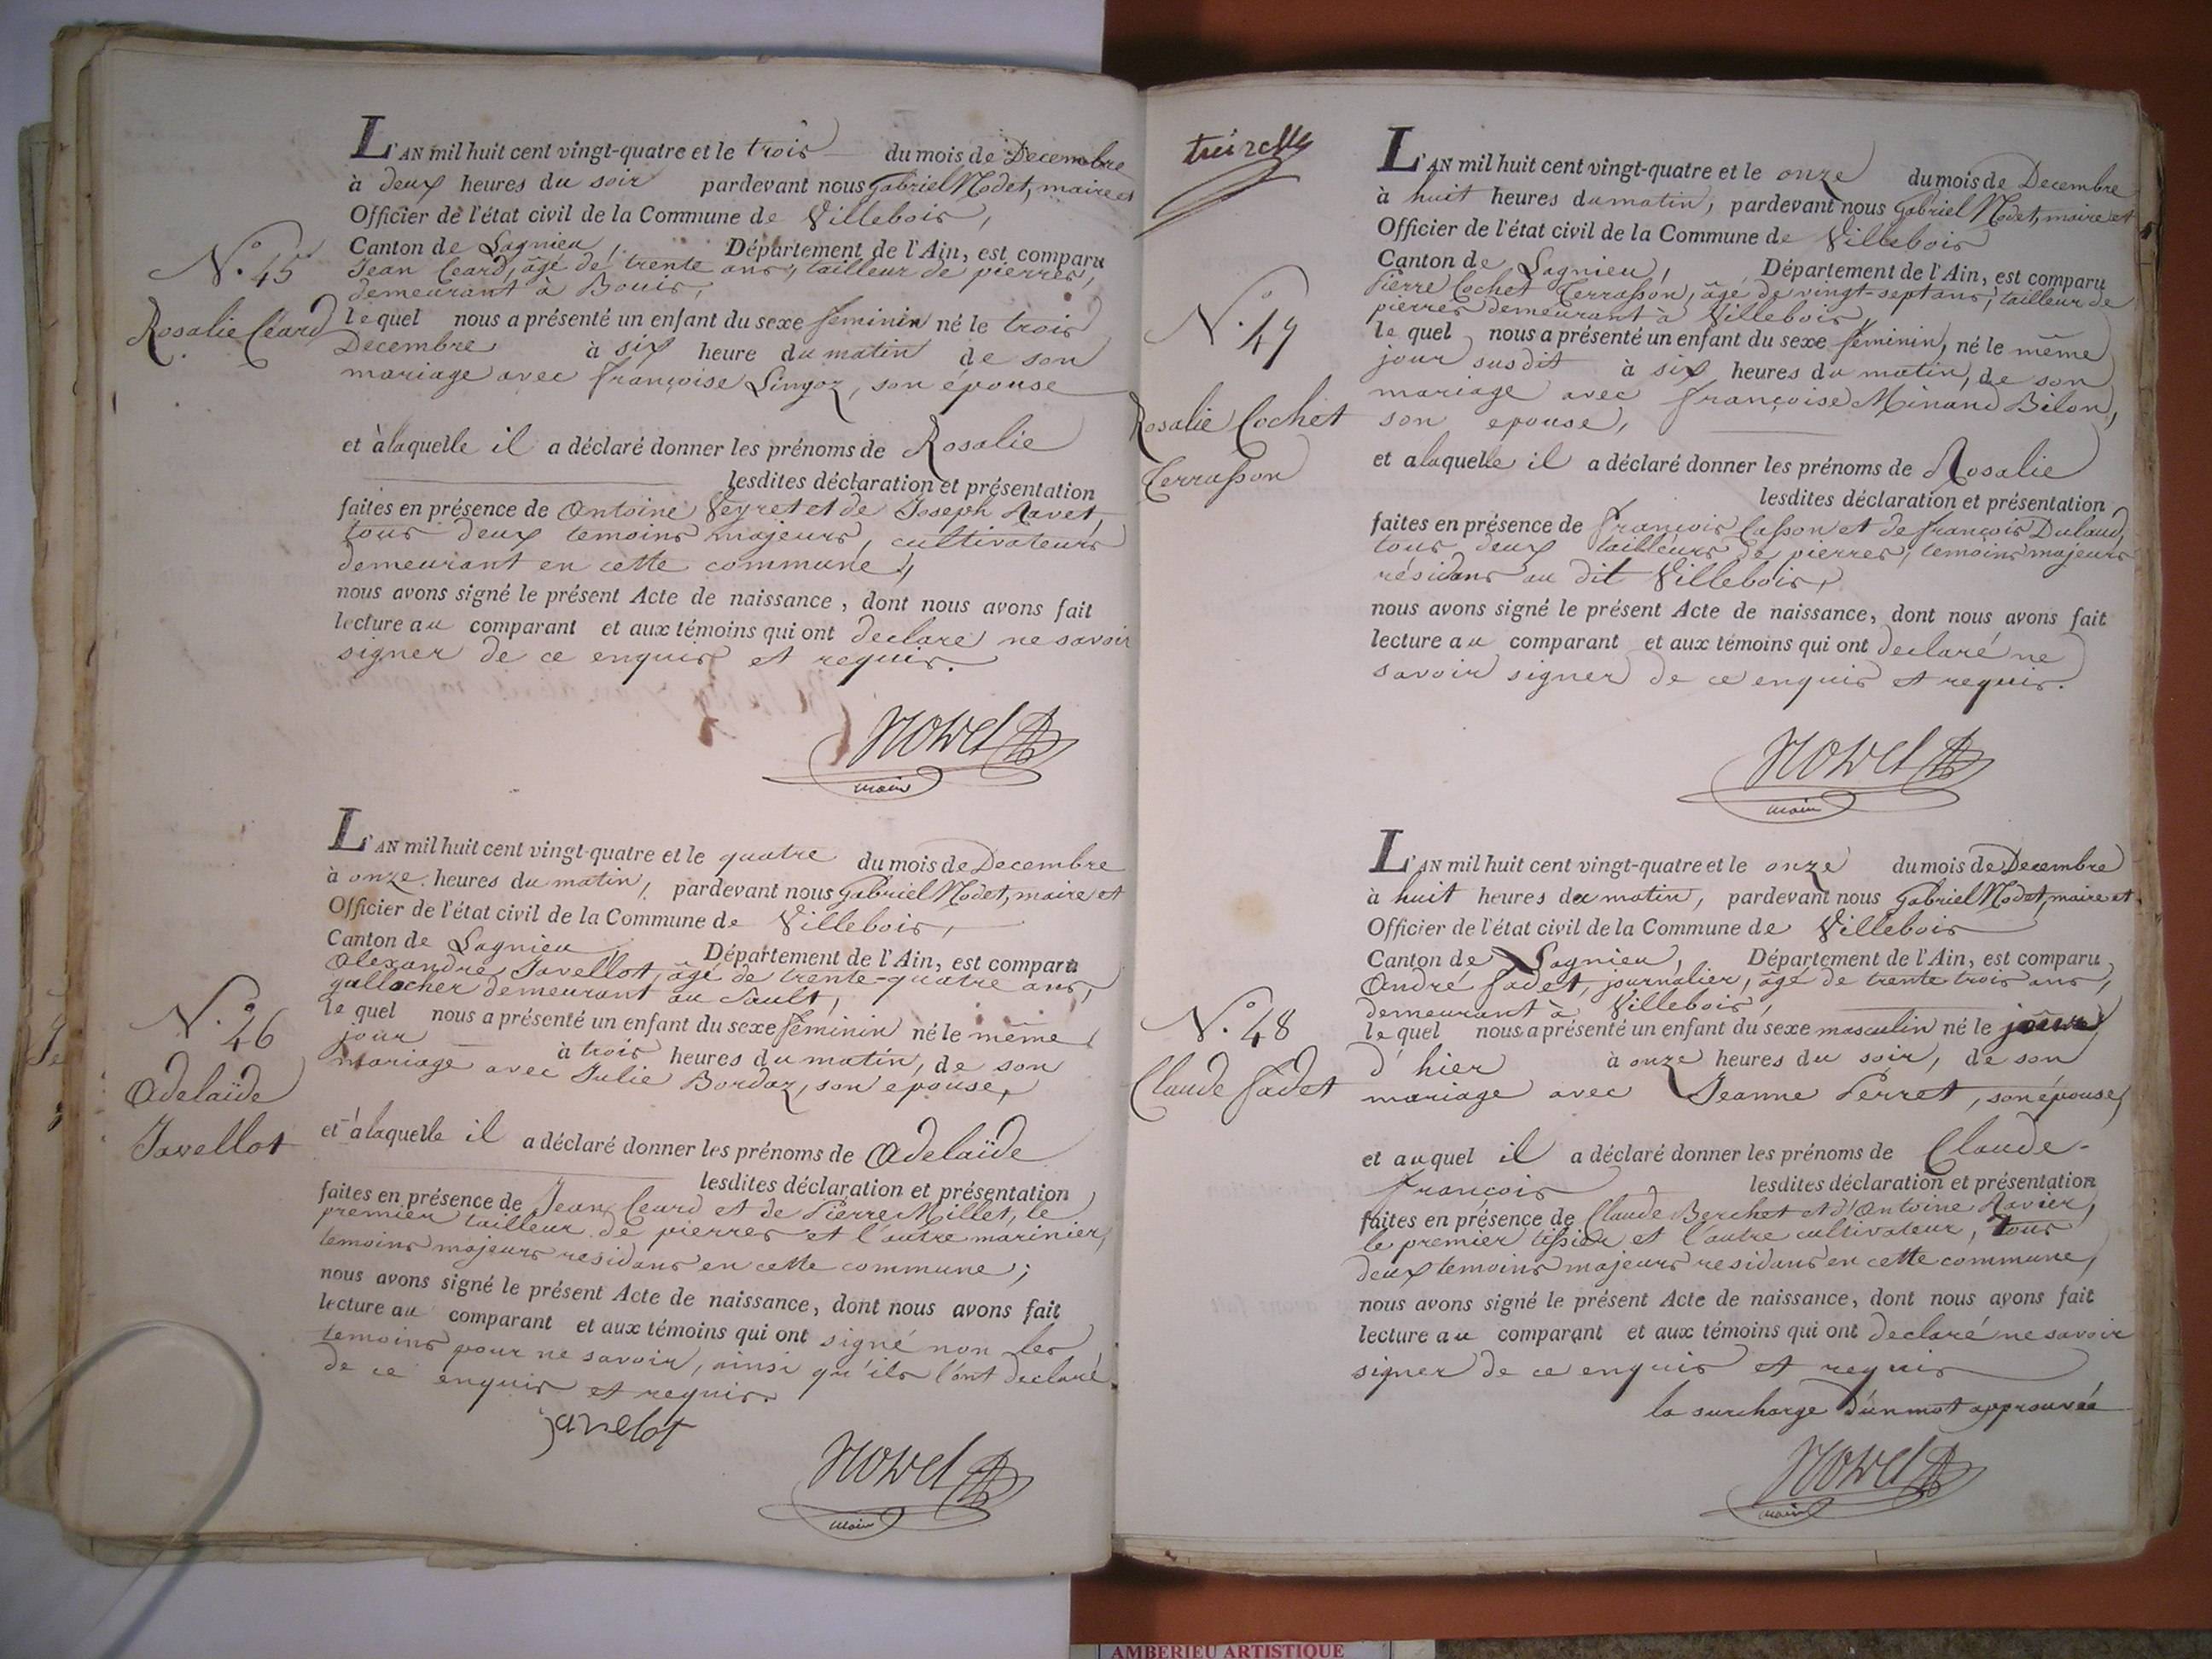 L'AN mil huit cent vingt-quatre et le trois du mois de Decembre
à deux heures du soir pardevant nous Gabriel Nodet, maire et
Officier de l'état civil de la Commune de Villebois,
Canton de Lagnieu, Département de l'Ain, est comparu
Jean Ceard, âgé de trente ans, tailleur de pierres,
demeurant à Bouis,
N.º 45
Rosalie Céard
le quel nous a présenté un enfant du sexe feminin né le trois
Decembre à six heure du matin de son
mariage avec françoise Lingoz, son épouse
et à laquelle il a déclaré donner les prénoms de Rosalie
lesdites déclaration et présentation
faites en présence de Antoine Veyret et de Joseph Ravet,
tous deux temoins majeurs, cultivateurs
demeurant en cette commune,
nous avons signé le présent Acte de naissance, dont nous avons fait
lecture au comparant et aux témoins qui ont declaré ne savoir
signer de ce enquis et requis.
Nodet
maire
L'AN mil huit cent vingt-quatre et le quatre du mois de Decembre
à onze heures du matin, pardevant nous Gabriel Nodet, maire et
Officier de l'état civil de la Commune de Villebois,
Canton de Lagnieu, Département de l'Ain, est comparu
Alexandre Javellot, âgé de trente-quatre ans,
gallocher demeurant au Sault,
N.º 46
Adelaïde
Javellot
le quel nous a présenté un enfant du sexe féminin né le même
jour à trois heures du matin, de son
mariage avec Julie Bordaz, son epouse,
et à laquelle il a déclaré donner les prénoms de Adelaïde
lesdites déclaration et présentation
faites en présence de Jean Ceard et de Pierre Millet, le
premier tailleur de pierres et l'autre marinier,
temoins majeurs residans en cette commune;
nous avons signé le présent Acte de naissance, dont nous avons fait
lecture au comparant et aux témoins qui ont signé non les
temoins pour ne savoir, ainsi qu'ils l'ont declaré
de ce enquis et requis.
javelot
Nodet
maire
L'AN mil huit cent vingt-quatre et le onze du mois de Decembre
à huit heures du matin, pardevant nous Gabriel Nodet, maire et
Officier de l'état civil de la Commune de Villebois
Canton de Lagnieu, Département de l'Ain, est comparu
Pierre Cochet Terrasson, âgé de vingt-sept ans, tailleur de
pierres demeurant à Villebois,
N.º 47
Rosalie Cochet
Terrasson
le quel nous a présenté un enfant du sexe féminin, né le même
jour susdit à six heures du matin, de son
mariage avec françoise Minand Bilon,
son epouse,
et a laquelle il a déclaré donner les prénoms de Rosalie
lesdites déclaration et présentation
faites en présence de françois Casson et de françois Dulaud,
tous deux tailleurs de pierres, temoins majeurs
résidans au dit Villebois,
nous avons signé le présent Acte de naissance, dont nous avons fait
lecture au comparant et aux témoins qui ont declaré ne
savoir signer de ce enquis et requis.
Nodet
maire
L'AN mil huit cent vingt-quatre et le onze du mois de Decembre
à huit heures du matin, pardevant nous Gabriel Nodet, maire et
Officier de l'état civil de la Commune de Villebois
Canton de Lagnieu, Département de l'Ain, est comparu
André Fadet, journalier, âgé de trente trois ans,
demeurant à Villebois,
N.º 48
Claude Fadet
le quel nous a présenté un enfant du sexe masculin né le jour
d'hier à onze heures du soir, de son
mariage avec Jeanne Perret, son épouse,
et auquel il a déclaré donner les prénoms de Claude-
françois lesdites déclaration et présentation
faites en présence de Claude Berchet et d'Antoine Ravier,
le premier tissier et l'autre cultivateur, tous
deux temoins majeurs residans en cette commune,
nous avons signé le présent Acte de naissance, dont nous avons fait
lecture au comparant et aux témoins qui ont declaré ne savoir
signer de ce enquis et requis
la surcharge d'un mot approuvée
Nodet
maire
AMBERIEU ARTISTIQUE